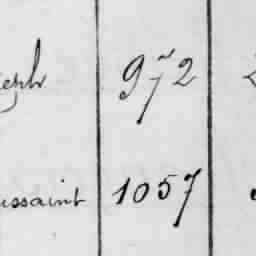 eph 972
ussaint 1057